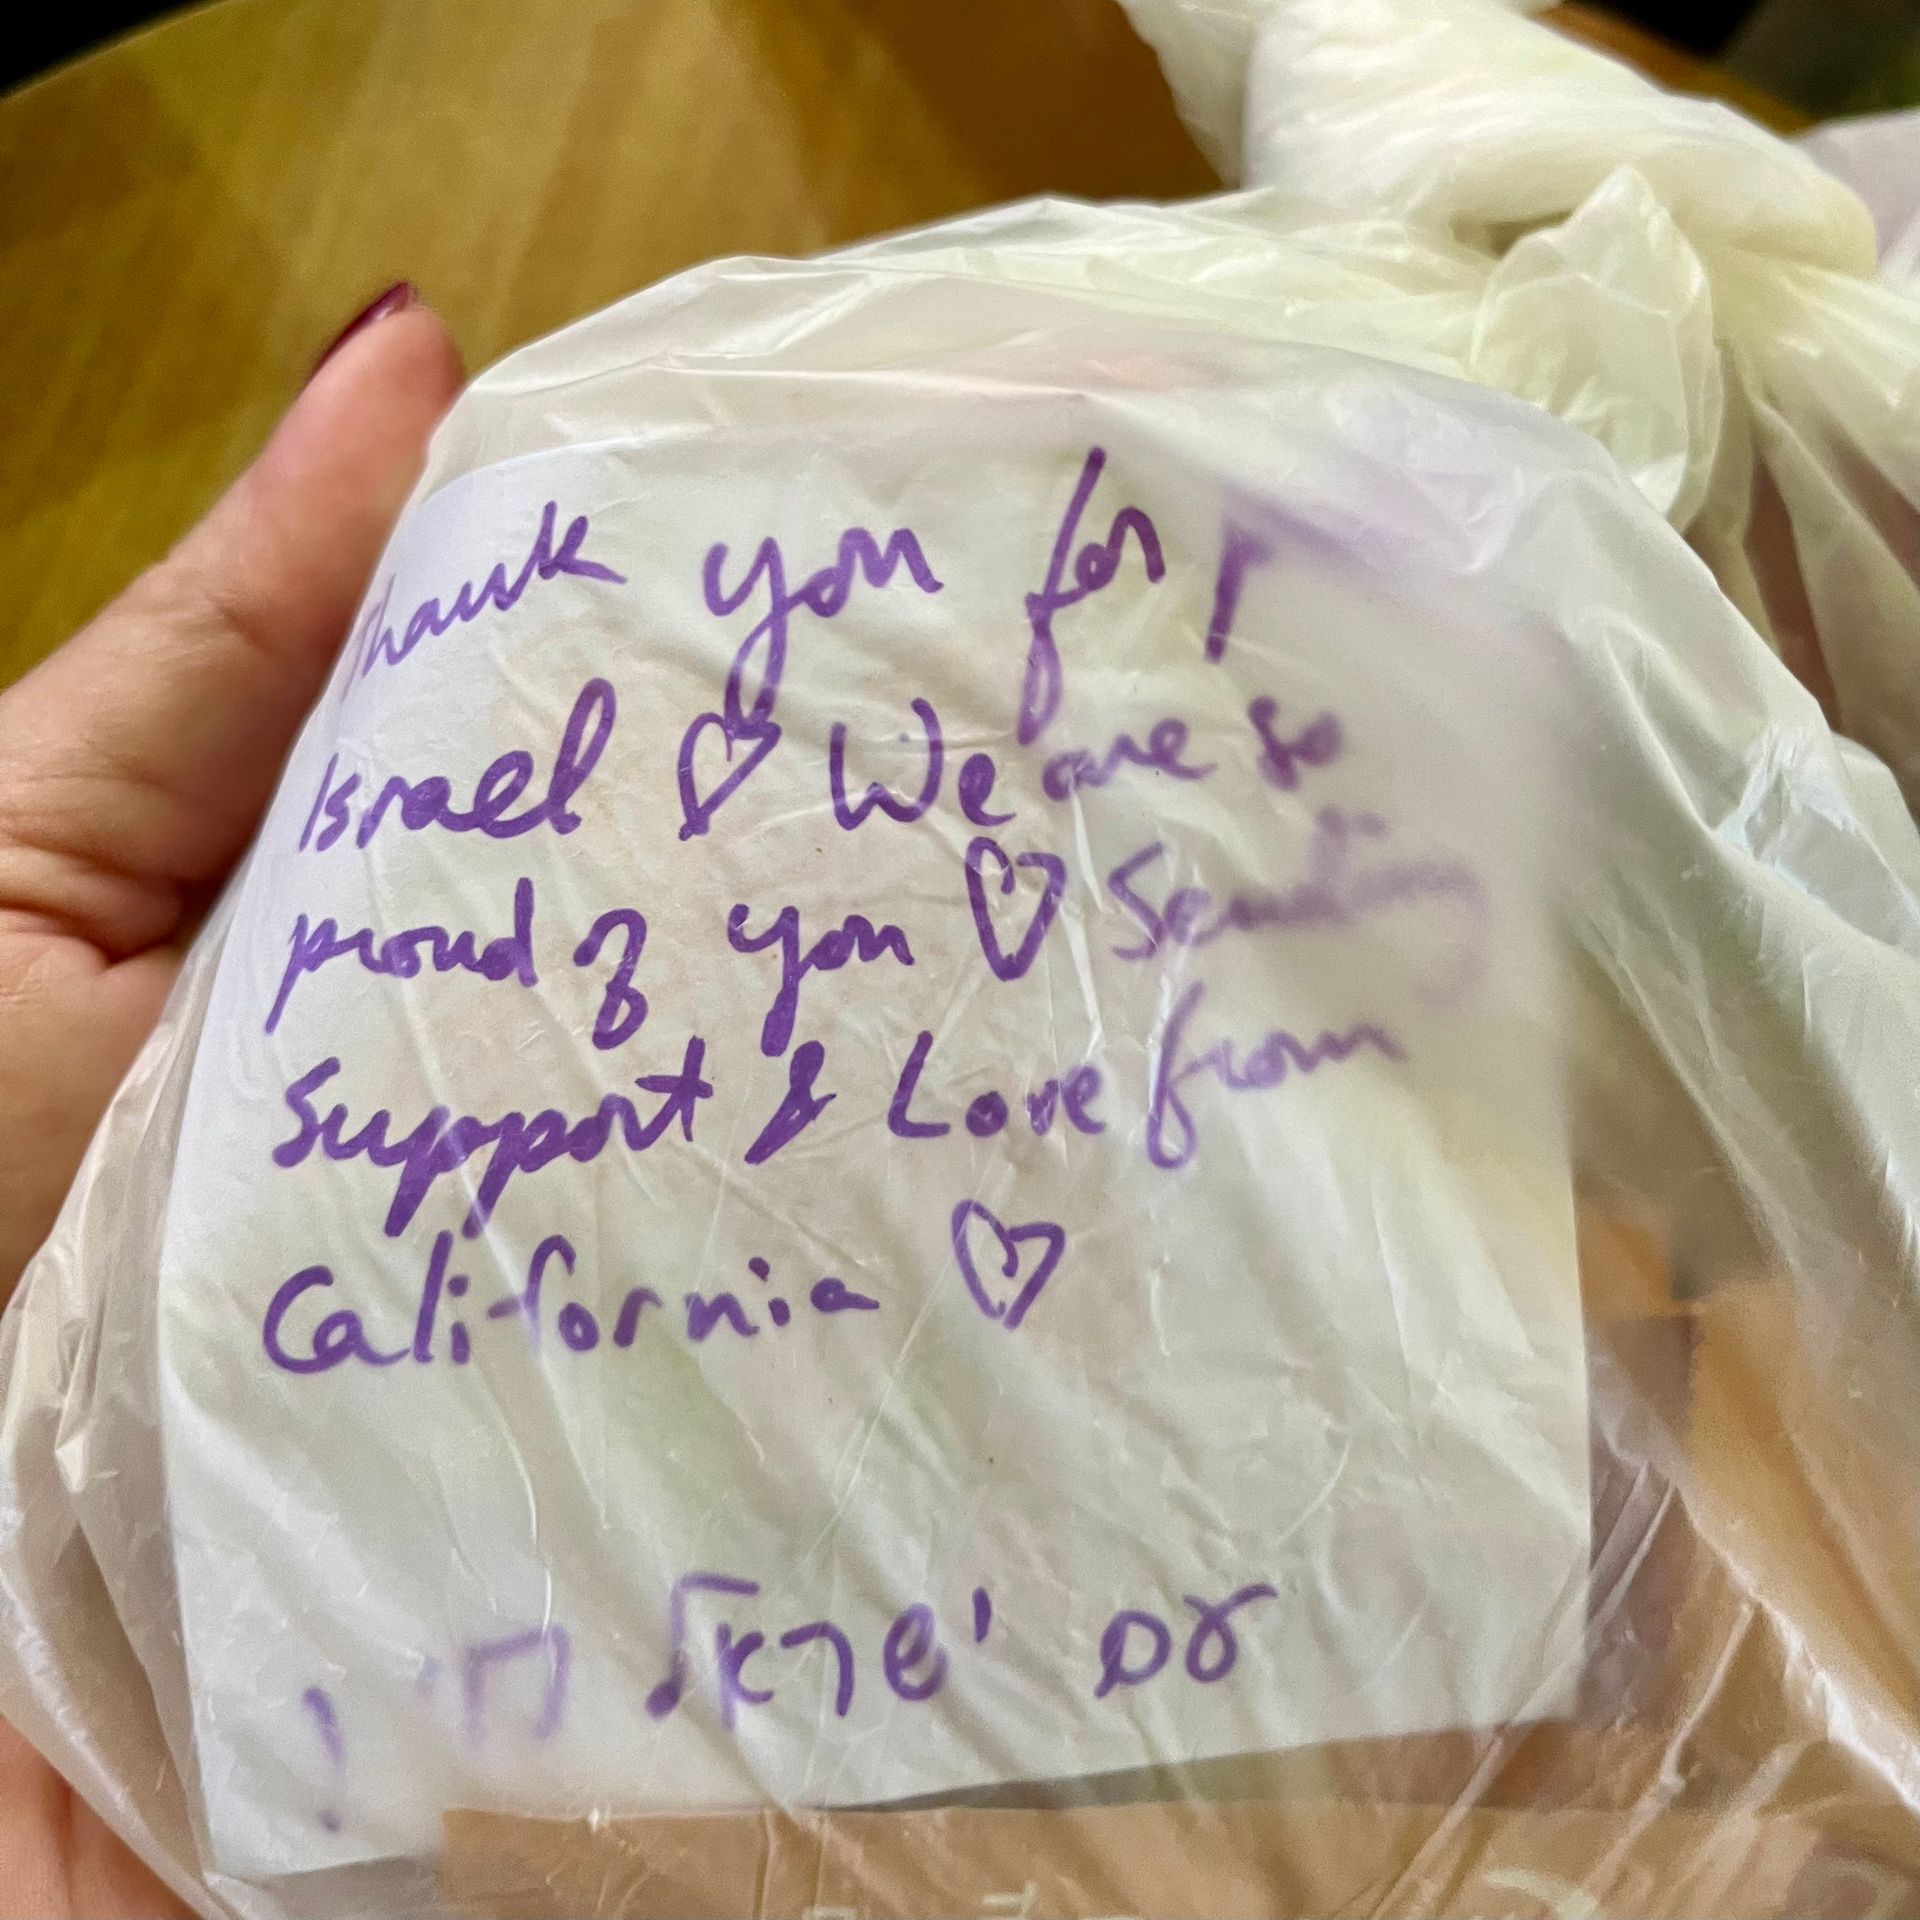 Thank you for
Israel ♡ We are so
proud of you ♡ Sending
Support & Love from
California ♡
עם ישראל חי!